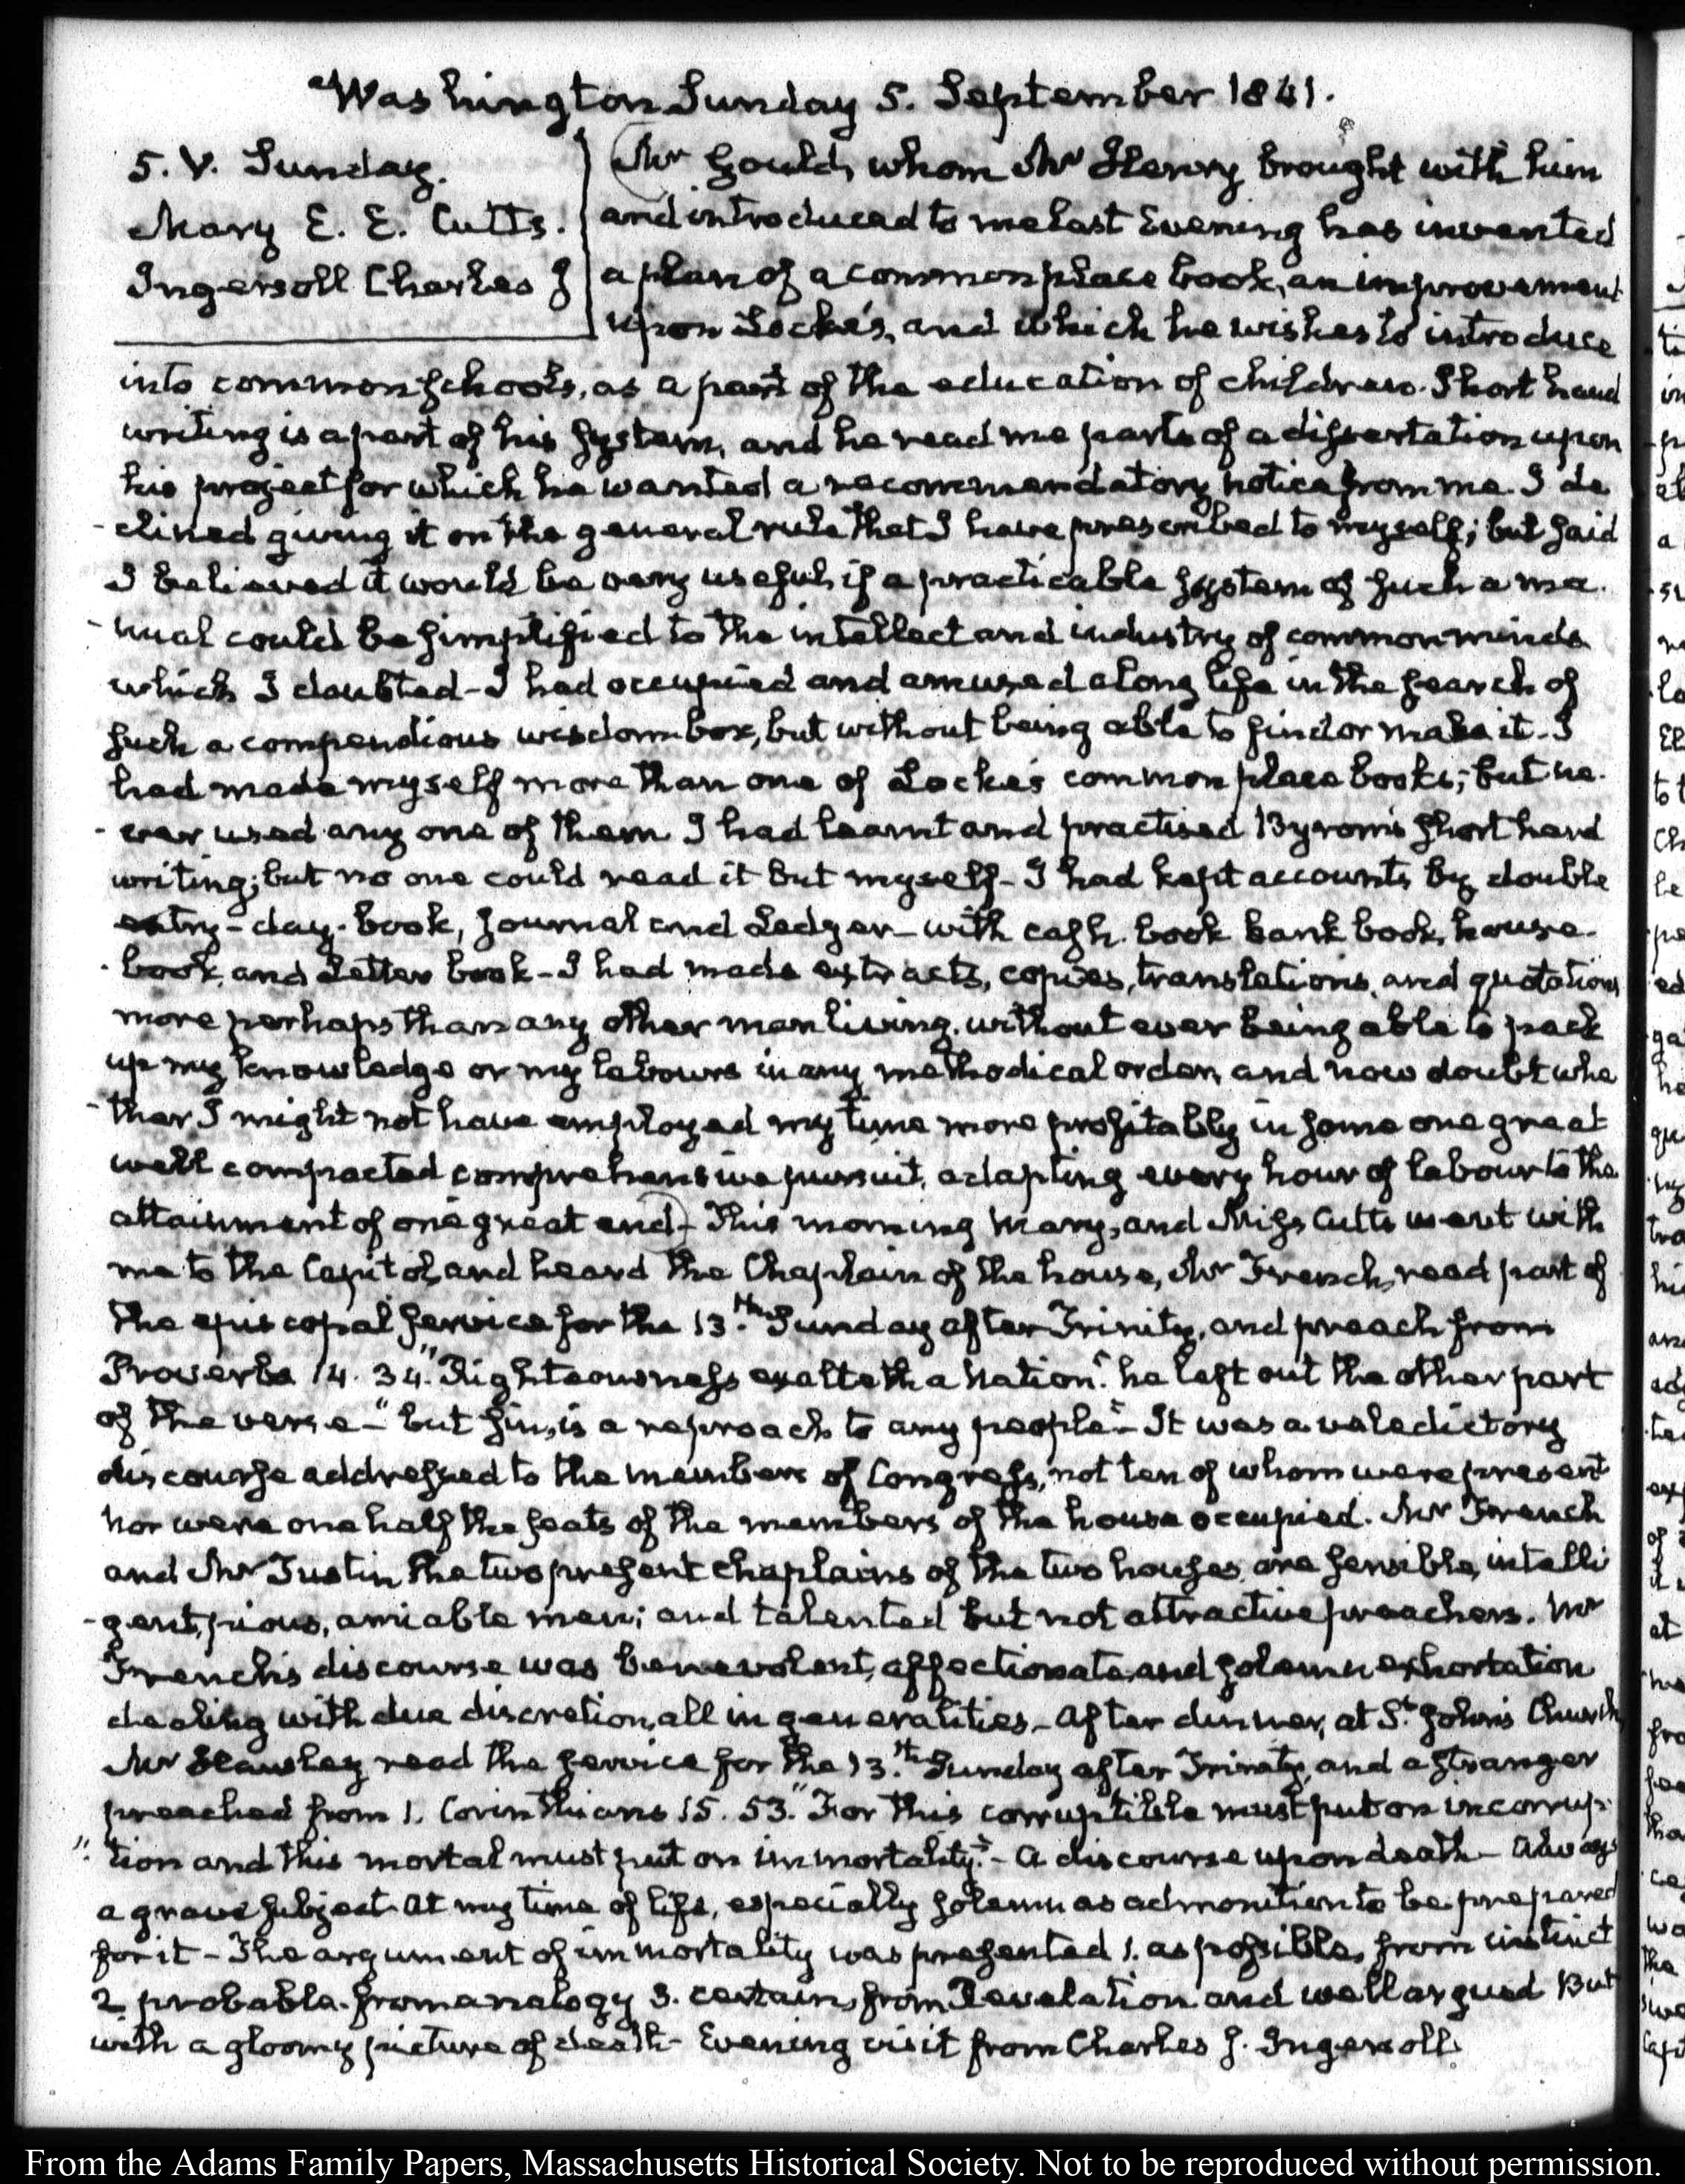 Washington Sunday 5. September 1841.
5. V. Sunday.
Mary E. E. Cutts.
Ingersoll Charles J
Mr Gould, whom Mr Henry brought with him
and introduced to me last Evening has invented
a plan of a common place book, an improvement
upon Locke's, and which he wishes to introduce
into common schools, as a part of the education of children. Short hand
writing is a part of his system, and he read me parts of a dissertation upon
his project for which he wanted a recommendatory notice from me. I de
-clined giving it on the general rule that I have prescribed to myself; but said
I believed it would be very useful, if a practicable system of such a ma.
-nual could be simplified to the intellect and industry of common minds
which I doubted - I had occupied and amused a long life in the search of
such a compendious wisdom-box, but without being able to find or make it. I
had made myself more than one of Locke's common place books; but ne.
-ver used any one of them I had learnt and practised Byrom's short hand
writing; but no one could read it but myself - I had kept accounts by double
entry - day-book, Journal and Ledger - with cash book bank book, house-
-book, and Letter book - I had made extracts, copies, translations, and quotations
more perhaps than any other man living, without ever being able to pack
up my knowledge or my labours in any methodical order, and now doubt whe
-ther I might not have employed my time more profitably in some one great
well compacted comprehensive pursuit, adapting every hour of labour to the
attainment of one great end) - This morning Mary, and Miss Cutts went with
me to the Capitol, and heard the Chaplain of the house, Mr French, read part of
the episcopal service for the 13.th Sunday after Trinity, and preach from
Proverbs 14. 34. "Righteousness exalteth a Nation". he left out the other part
of the verse - "but sin, is a reproach to any people" - It was a valedictory
discourse addressed to the members of Congress, not ten of whom were present
nor were one half the seats of the members of the house occupied. Mr French
and Mr Tustin the two present chaplains of the two houses, are sensible, intelli
-gent, pious, amiable men; and talented but not attractive preachers. Mr
French's discourse was benevolent, affectionate, and solemn exhortation
dealing with due discretion, all in generalities - After dinner, at St. John's Church
Mr Hawley read the service for the 13.th Sunday after Trinity, and a stranger
preached from 1. Corinthians 15. 53. "For this corruptible must put on incorrup-
"-tion and this mortal must put on immortality." - A discourse upon death - Always
a grave subject. At my time of life, especially solemn as admonition to be prepared
for it - The argument of immortality was presented 1. as possible, from instinct
2 probable. from analogy 3. certain, from Revelation and well argued But
with a gloomy picture of death - Evening visit from Charles J. Ingersoll.
From the Adams Family Papers, Massachusetts Historical Society. Not to be reproduced without permission.